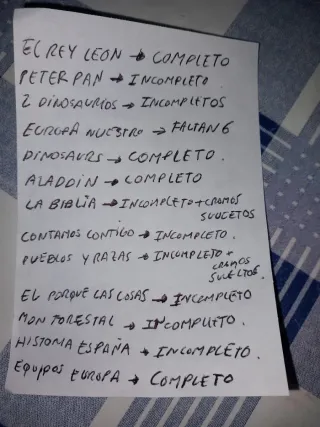 EL REY LEON → COMPLETO
PETER PAN → INCOMPLETO
2 DINOSAURIOS → INCOMPLETOS
EUROPA NUESTRO → FALTAN 6
DINOSAURS → COMPLETO.
ALADDIN → COMPLETO
LA BIBLIA → INCOMPLETO + CROMOS
SUELTOS
CONTAMOS CONTIGO → INCOMPLETO.
PUEBLOS Y RAZAS → INCOMPLETO +
CROMOS
SUELTOS.
EL PORQUE LAS COSAS → INCOMPLETO
MON FORESTAL → INCOMPLETO.
HISTORIA ESPAÑA → INCOMPLETO.
EQUIPOS EUROPA → COMPLETO